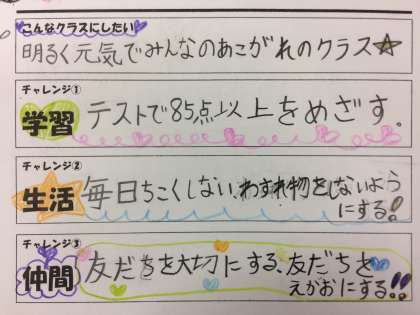 こんなクラスにしたい
明るく元気でみんなのあこがれのクラス☆
チャレンジ①
学習
テストで85点以上をめざす。
チャレンジ②
生活
毎日ちこくしない、わすれ物をしないよう
にする!!
チャレンジ③
仲間
友だちを大切にする、友だちを
えがおにする!!